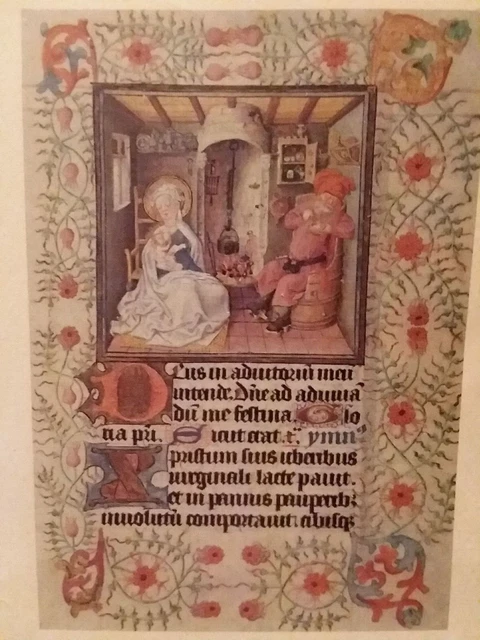 Deus in adiutoriū meū
intende. Dn̄e ad adiuuā
dū me festina. Glo
ria pr̄i. Sicut erat. ymn
pastum suis uberibus
uirginali lacte pauit.
et in pannis pauperibz
inuolutū comportauit.